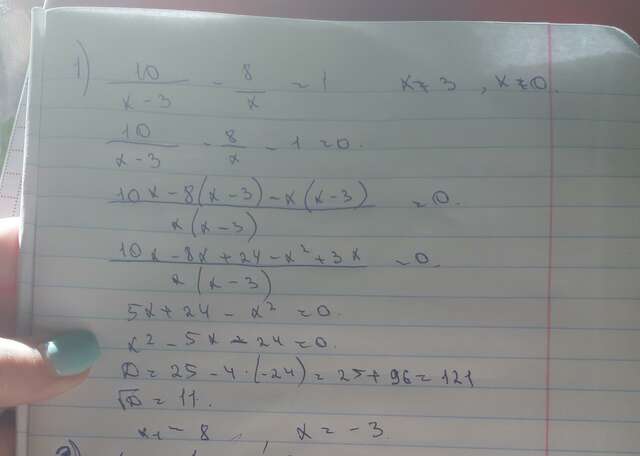 1) 10/(x-3) - 8/x = 1 x≠3, x≠0.
10/(x-3) - 8/x - 1 = 0.
(10x-8(x-3)-x(x-3))/(x(x-3)) = 0.
(10x-8x+24-x²+3x)/(x(x-3)) = 0
5x+24-x² = 0.
x²-5x-24=0.
D=25-4·(-24)=25+96=121
√D=11.
x₁=8, x=-3.
2)